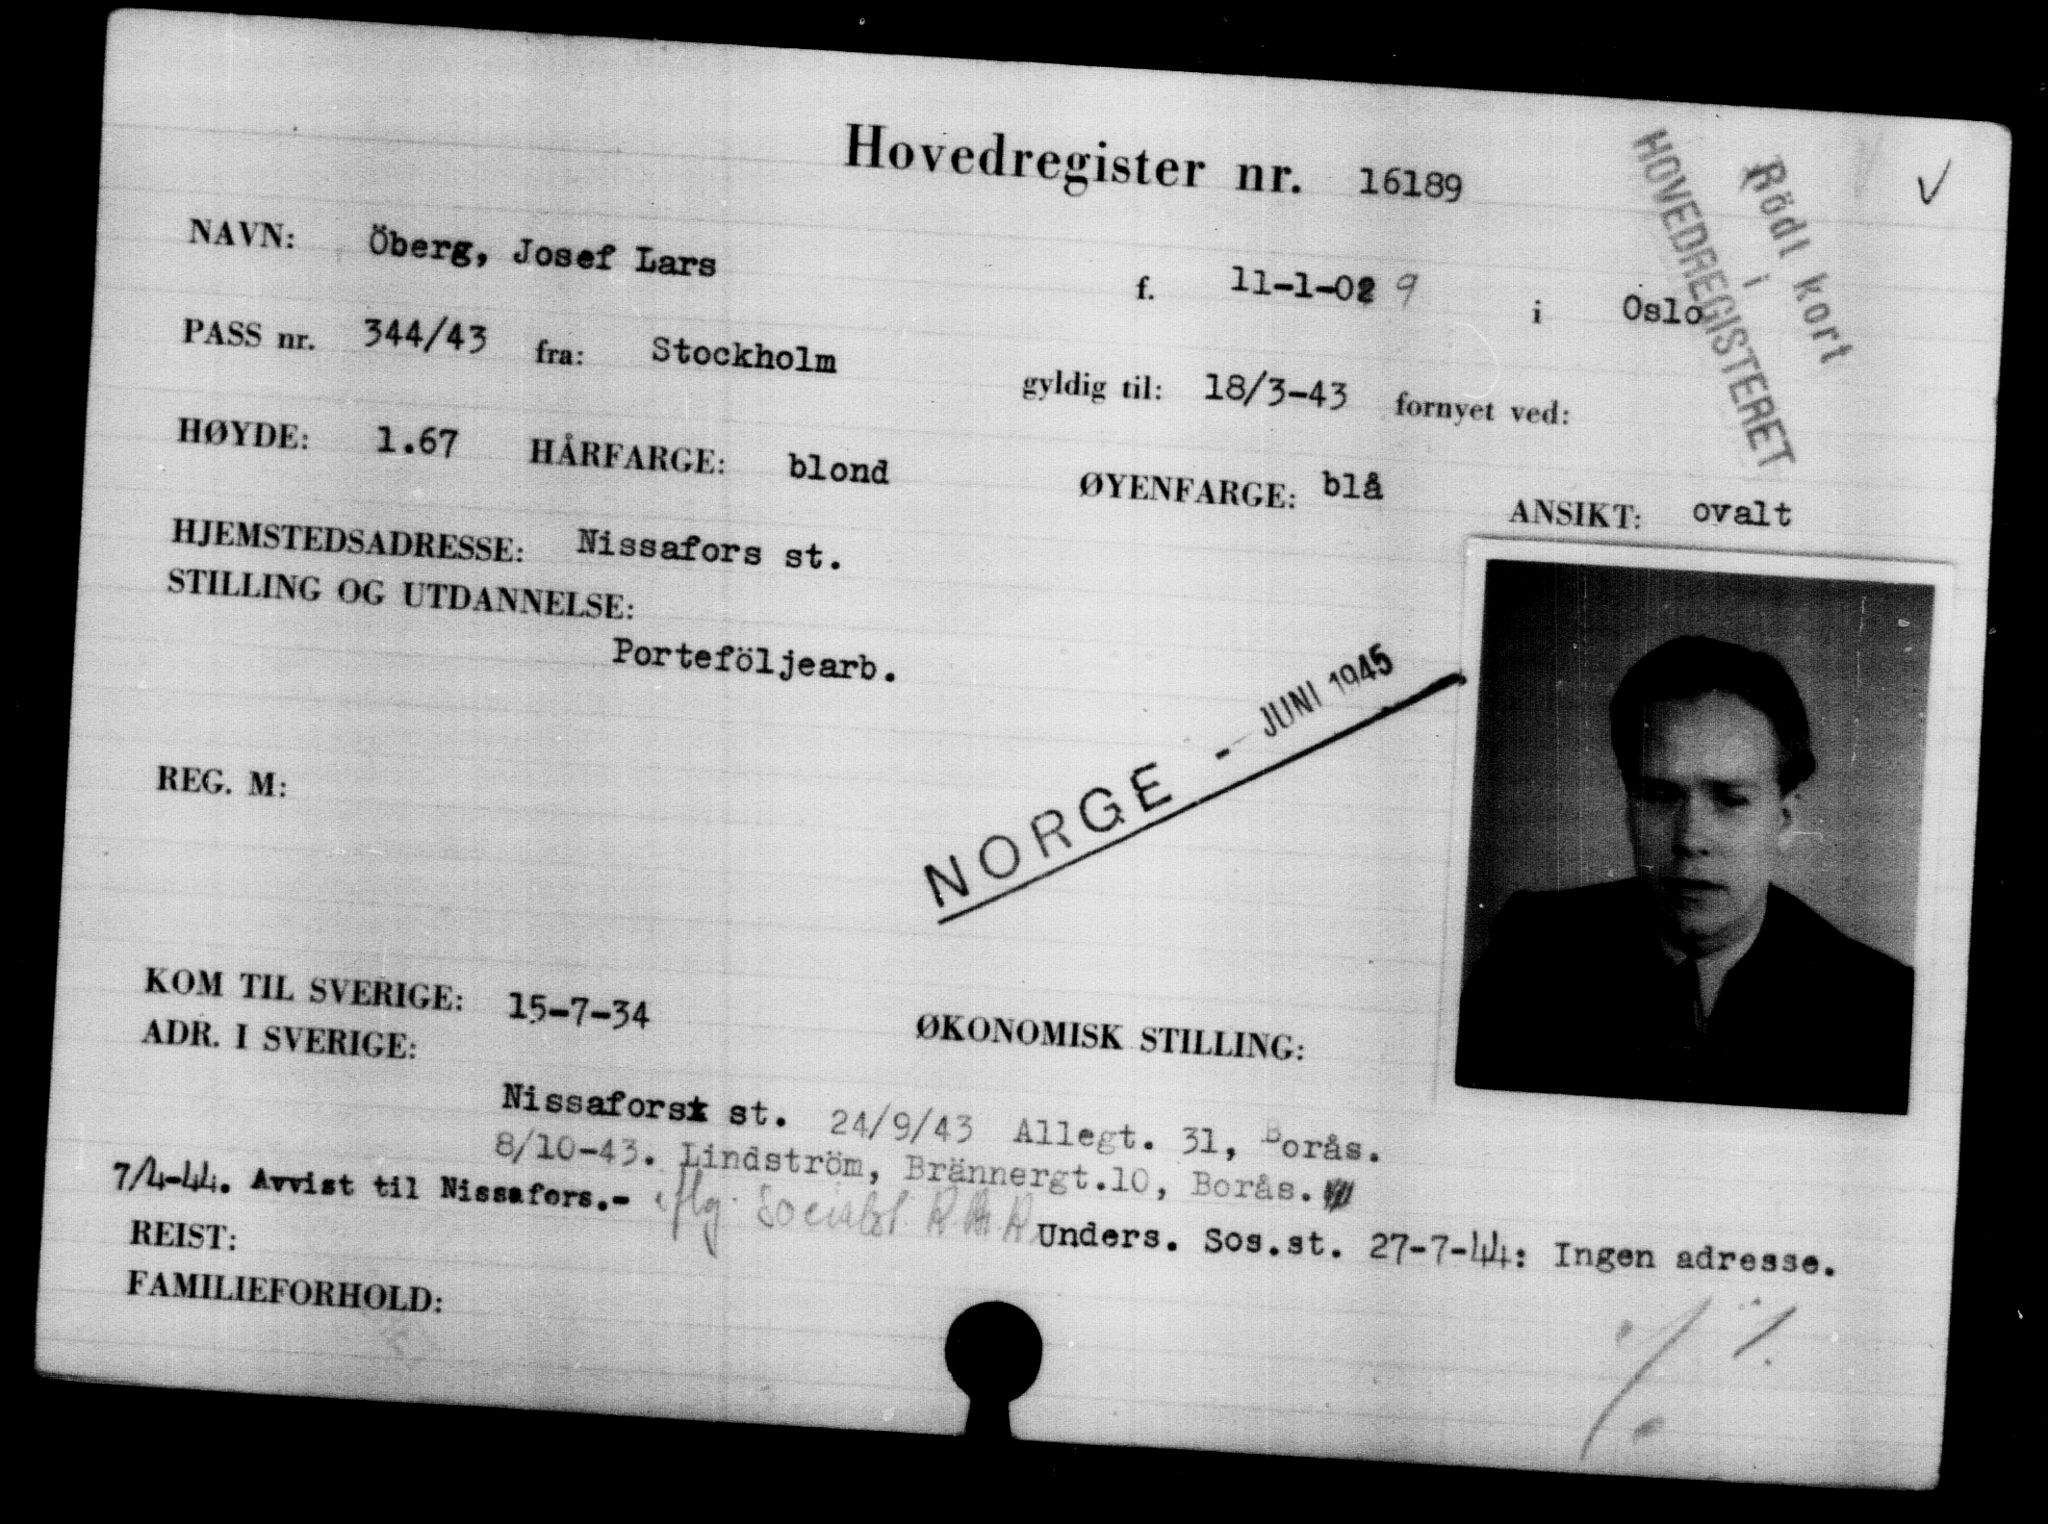 Hovedregister nr. 16189
Rödt kort
i
HOVEDREGISTERET
NAVN: Öberg, Josef Lars f. 11-1-02 9 i Oslo
PASS nr. 344/43 fra: Stockholm gyldig til: 18/3-43 fornyet ved:
HØYDE: 1.67 HÅRFARGE: blond ØYENFARGE: blå ANSIKT: ovalt
HJEMSTEDSADRESSE: Nissafors st.
STILLING OG UTDANNELSE:
Porteföljearb.
NORGE - JUNI 1945
REG. M:
KOM TIL SVERIGE: 15-7-34 ØKONOMISK STILLING:
ADR. I SVERIGE:
Nissafors st. 24/9/43 Allegt. 31, Borås.
8/10-43. Lindström, Brännergt.10, Borås.
7/4-44. Avvist til Nissafors.- iflg. Socialst.
Unders. Sos.st. 27-7-44: Ingen adresse.
REIST:
FAMILIEFORHOLD: